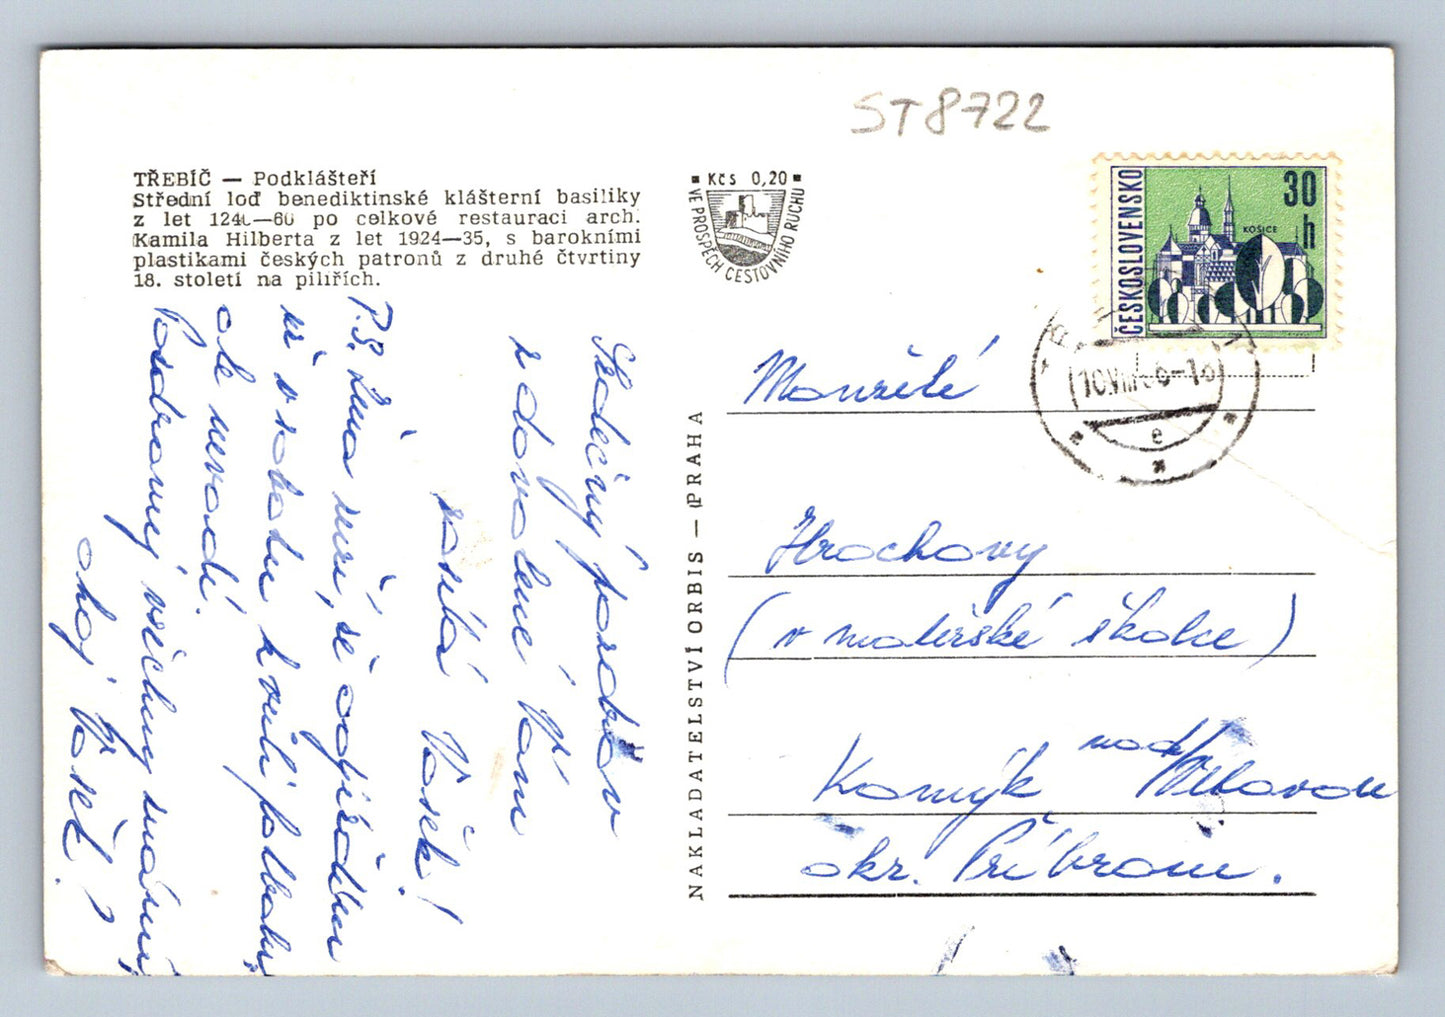 ST8722
TŘEBÍČ — Podklášteří
Střední loď benediktinské klášterní basiliky
z let 1240—60 po celkové restauraci arch.
Kamila Hilberta z let 1924—35, s barokními
plastikami českých patronů z druhé čtvrtiny
18. století na pilířích.
Kčs 0,20
VE PROSPĚCH CESTOVNÍHO RUCHU
ČESKOSLOVENSKO
30 h
KOŠICE
10.VIII 66-16
e
Srdečný pozdrav
z dovolené Vám
zasílá Vašek!
P.S. Líza mrzí, že odjíždím
až v sobotu kvůli
ale nevadí.
Pozdravuj všechny známý
ahoj Vašek.
NAKLADATELSTVÍ ORBIS — PRAHA
Manželé
Hrochovy
(v mateřské školce)
Kamýk nad Vltavou
okr. Příbram.